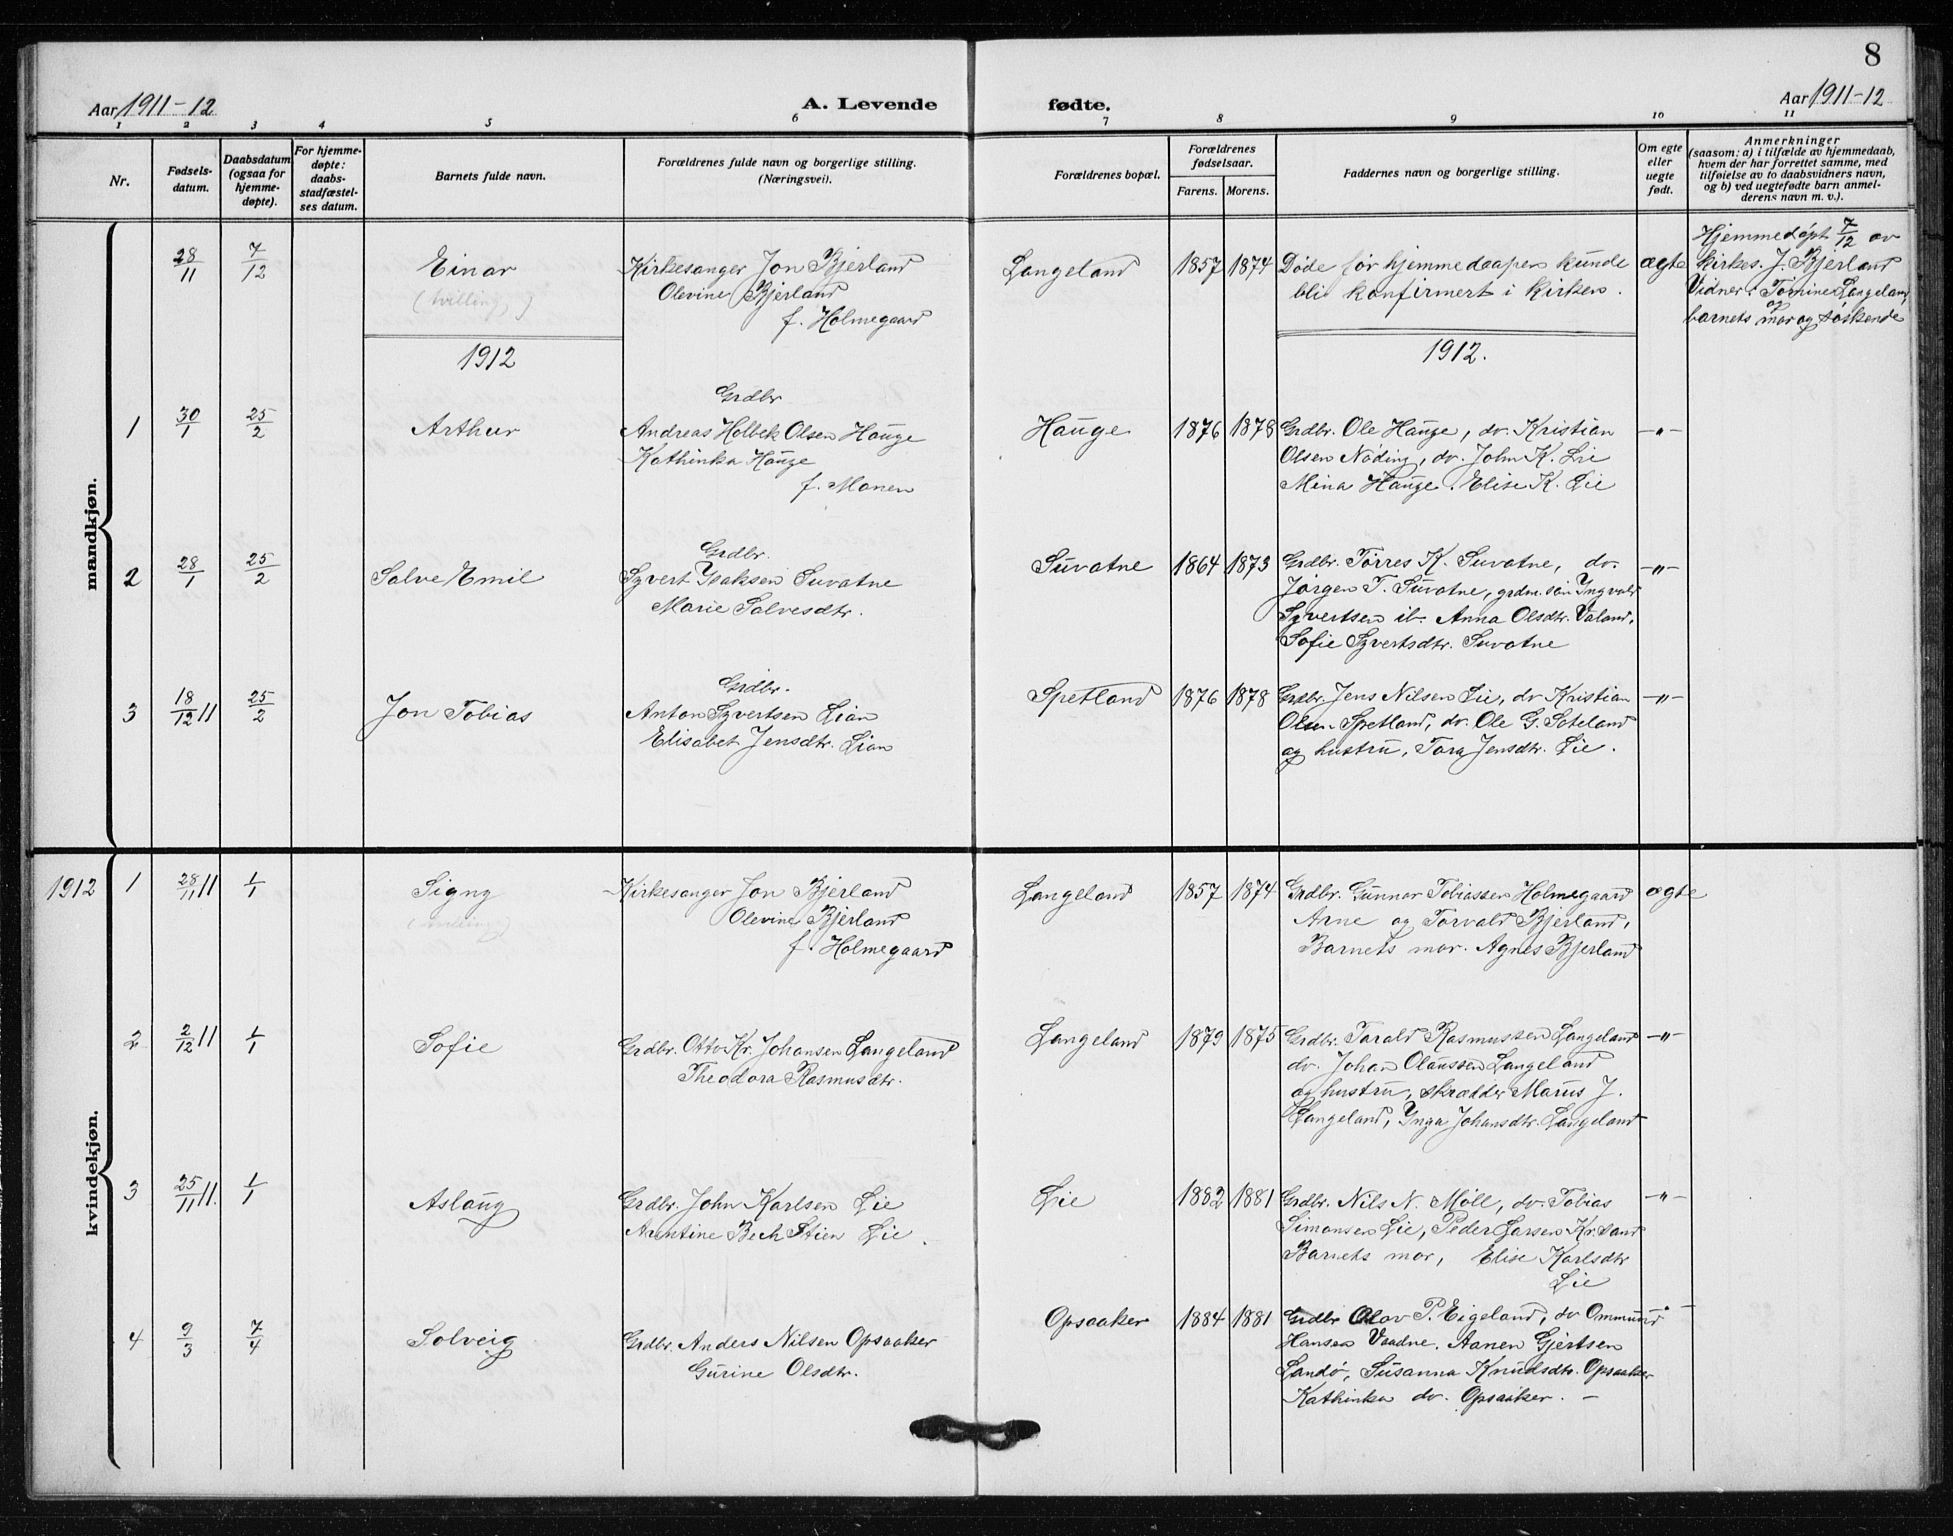 8
Aar 1911-12 A. Levende fødte. Aar 1911-12
1 2 3 4 5 6 7 8 9 10 11
Nr.
Fødsels-
datum.
Daabsdatum
(ogsaa for
hjemme-
døpte).
For hjemme-
døpte:
daabs-
stadfæstel-
ses datum.
Barnets fulde navn.
Forældrenes fulde navn og borgerlige stilling.
(Næringsvei).
Forældrenes bopæl.
Forældrenes
fødselsaar.
Farens. Morens.
Faddernes navn og borgerlige stilling.
Om egte
eller
uegte
født.
Anmerkninger
(saasom: a) i tilfælde av hjemmedaab,
hvem der har forrettet samme, med
tilføielse av to daabsvidners navn,
og b) ved uegtefødte barn anmel-
derens navn m. v.).
mandkjøn.
28/11 7/12
Einar
(tvilling)
Kirkesanger Jon Bjerland
Olevine Bjerland
f. Holmegaard
Langeland 1857 1874
Døde før hjemmedaapen kunde
bli konfirmert i kirken.
ægte
Hjemmedøpt 7/12 av
kirkes. J. Bjerland
Vidner: Tomine Langeland
og
barnets mor og søskende
1912
1912.
1 30/1 25/2
Arthur
Grdbr
Andreas Holbek Olsen Hauge
Kathinka Hauge
f. Monen
Hauge 1876 1878
Grdbr. Ole Hauge, do. Kristian
Olsen Nöding, do. John K. Lie
Mina Hauge. Elise K. Lie
-"-
2 28/1 25/2
Salve Emil
Grdbr.
Syvert Ysaksen Suvatne
Marie Salvesdtr.
Suvatne 1864 1873
Grdbr. Tørres K. Suvatne, do.
Jørgen T. Suvatne, grdm. søn Yngvald
Syvertsen ib. Anna Olsdtr. Valand,
Sofie Syvertsdtr. Suvatne
-"-
3 18/12 11 25/2
Jon Tobias
Grdbr.
Anton Syvertsen Lian
Elisabet Jensdtr. Lian
Spetland 1876 1878
Grdbr. Jens Nilsen Lie, do Kristian
Olsen Spetland, do. Ole G. Soteland
og hustru, Tora Jensdtr. Lie.
-"-
kvindekjøn.
1912 1 28/11 11 1/1
Signy
(tvilling)
Kirkesanger Jon Bjerland
Olevine Bjerland
f. Holmegaard
Langeland 1857 1874
Grdbr. Gunnar Tobiassen Holmegaard
Arne og Torvald Bjerland,
Barnets mor. Agnes Bjerland
ægte
2 2/12 11 1/1
Sofie
Grdbr. Otto Kr. Johansen Langeland
Theodora Rasmusdtr.
Langeland 1879 1875
Grdbr. Tarald Rasmussen Langeland
do. Johan Olaussen Langeland
og hustru, skrædder Marius J.
Langeland, Ynga Johansdtr. Langeland
-"-
3 25/11 11. 1/1
Aslaug
Grdbr. John Karlsen Lie
Arntine Bech Stien Lie.
Lie 1882 1881
Grdbr. Nils N. Möll, do. Tobias
Simonsen Lie, Peder Larsen Kr.sand
Barnets mor, Elise Karlsdtr
Lie
-"-
4 9/3 7/4
Solveig
Grdbr. Anders Nilsen Opsaaker
Gurine Olsdtr.
Opsaaker 1884 1881
Grdbr Olav P. Eigeland, do Ommund
Hansen Vaadne. Aanen Gjertsen
Landö, Susanna Knudsdtr. Opsaaker
Kathinka do. Opsaaker. -
-"-